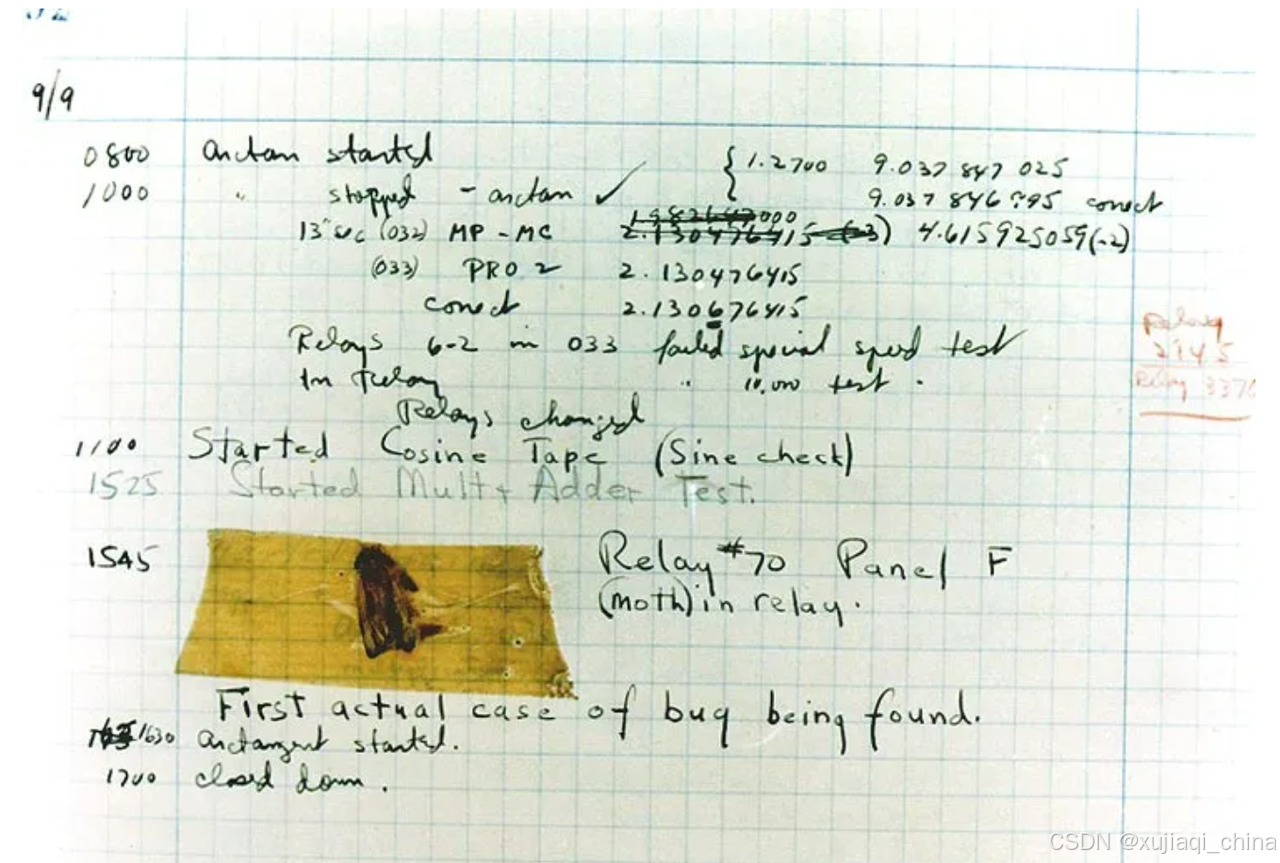 9/9
0800 arctan started { 1.2700 9.037 847 025
1000 " stopped - arctan ✓ 9.037 846 995 conect
13" sec (032) MP - MC 2.130476415 (-3) 4.615925059(-2)
(033) PRO 2 2.130476415
conect 2.130676415
Relays 6-2 in 033 failed special speed test
In Relay " 10,000 test.
Relays changed
Relay
2145
Relay 3370
1100 Started Cosine Tape (Sine check)
1525 Started Mult + Adder Test.
1545 Relay #70 Panel F
(moth) in relay.
First actual case of bug being found.
1630 arctangent started.
1700 closed down.
CSDN @xujiaqi_china